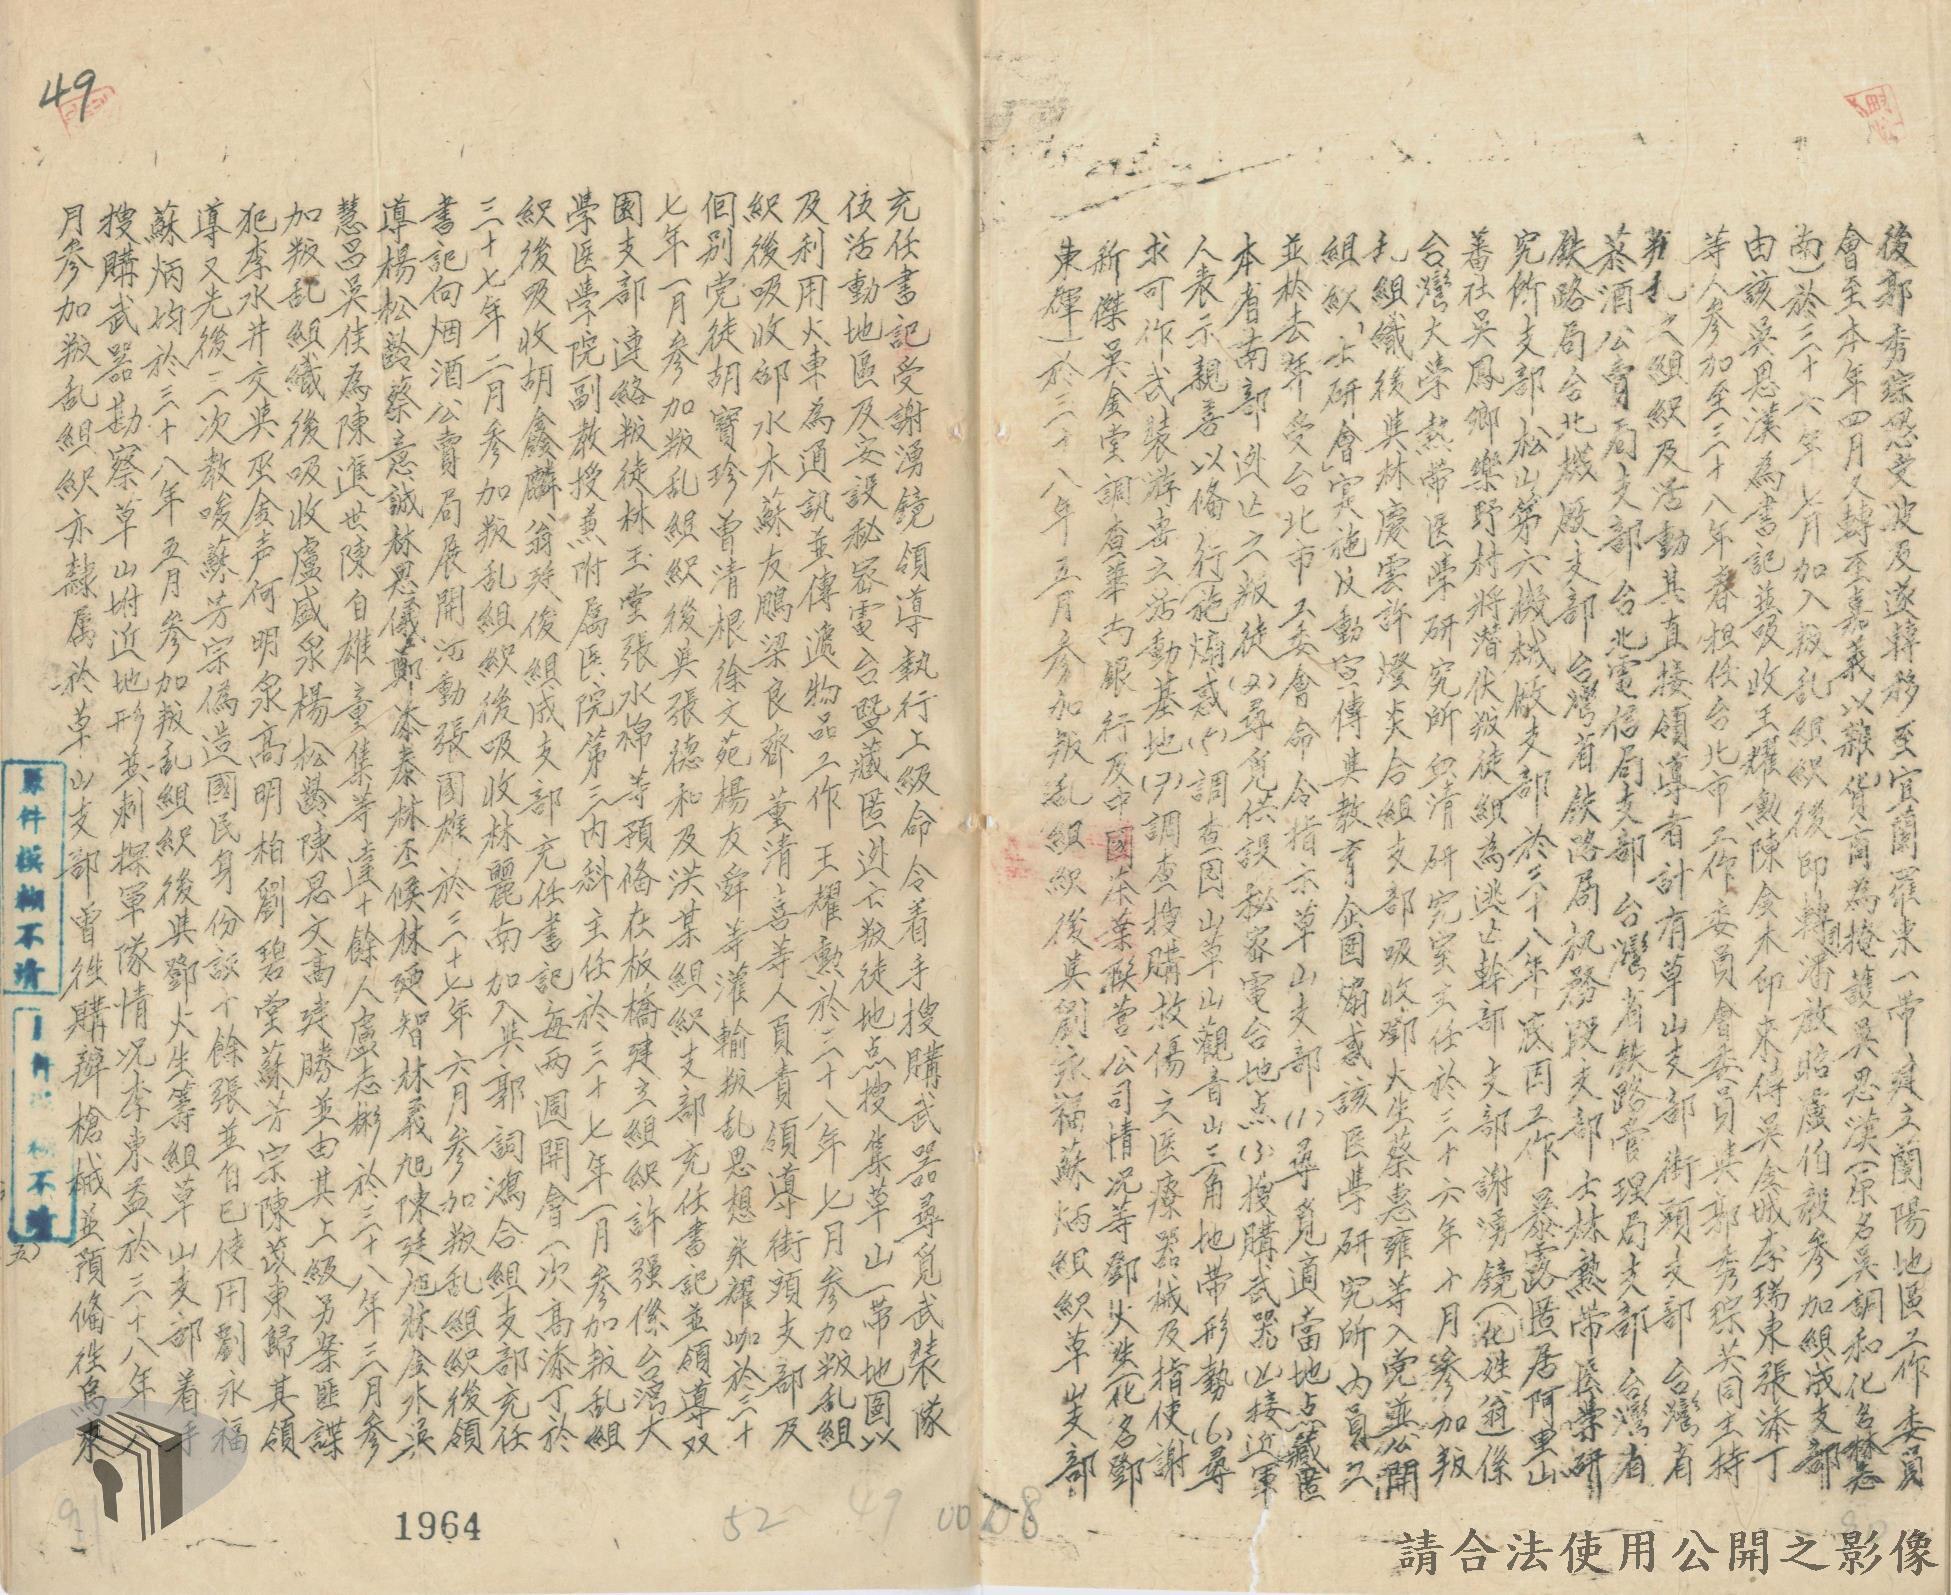 後郭秀琮恐受波及遂轉移至宜蘭羅東一帶建立蘭陽地區工作委員
會至本年四月又轉至嘉義以雜貨商為掩護吳思漢(原名吳調和化名林志
南)於三十六年七月加入叛乱組織後即轉潘放昭盧伯毅參加組成支部
由該吳思漢為書記並吸收王耀勲陳金木印東傳吳金城李瑞東張添丁
等人參加至三十八年春担任台北市工作委員會委員與郭秀琮共同主持
叛乱之組織及活動其直接領導者計有草山支部街頭支部台灣省
菸酒公賣局支部台北電信局支部台灣省鉄路管理局支部台灣省
鉄路局台北機廠支部台灣省鉄路局机務段支部士林熱帯医學研
究所支部松山第六機械廠支部於三十八年底因工作暴露匿居阿里山
蕃社吳鳳鄉樂野村將潛伏叛徒組為逃亡幹部支部謝湧鏡(化姓翁)係
台灣大學熱帯医學研究所血清研究室主任於三十六年十月參加叛
乱組織後與林慶雲許燈炎合組支部吸收鄧火生蔡惠雍等入党並公開
組織「士研會」実施反動宣傳與教育企图煽惑該医學研究所內員工
並於去年受台北市工委會命令指示草山支部(1)尋覓適當地点藏匿
本省南部逃亡之叛徒(2)尋覓供設秘密電台地点(3)搜購武器(4)接近軍
人表示親善以俻行施煽惑(5)調查图山草山觀音山三角地带形勢(6)尋
求可作武裝游击之活動基地(7)調查搜購救傷之医療器械及指使謝
新傑吳金堂調查華南銀行及中國茶葉联营公司情况等鄧火生(化名鄧
東輝)於三十八年五月參加叛乱組織後與劉永福蘇炳組織草山支部
充任書記受謝湧鏡領導執行上級命令着手搜購武器尋覓武裝隊
伍活動地區及安設秘密電台暨藏匿逃亡叛徒地点搜集草山一帶地图以
及利用火車為通訊並傳遞物品工作王耀勲於三十八年七月參加叛乱組
織後吸收邱水木蘇友鵬梁良齊董清喜等人頁責領導街頭支部及
個別党徒胡寶珍曾清根徐文苑楊友舜等灌輸叛乱思想朱耀咖於三十
七年一月參加叛乱組織後與張德和及洪某組織支部充任書記並領導双
園支部連絡叛徒林玉堂張水棉等預俻在板橋建立組織許强係台灣大
學医學院副教授兼附屬医院第三內科主任於三十七年一月參加叛乱組
織後吸收胡鑫麟翁廷俊組成支部充任書記每兩週開會一次高添丁於
三十七年二月參加叛乱組織後吸收林麗南加入與郭詞鴻合組支部充任
書記向烟酒公賣局展開活動張國雄於三十七年六月參加叛乱組織後領
導楊松齡蔡意誠林思儀鄭添泰林丕候林廼智林義旭陳廷旭林金水吳
慧昌吳佳為陳進世陳自雄童集等達十餘人盧志彬於三十八年三月參
加叛乱組織後吸收盧盛泉楊松齡陳思文高建勝並由其上級另案匪諜
犯李水井交與巫金声何明泉高明柏劉碧堂蘇芳宗陳茂東歸其領
導又先後二次教唆蘇芳宗偽造國民身份証十餘張並自已使用劉永福
蘇炳均於三十八年五月參加叛乱組織後與鄧火生等組草山支部着手
搜購武器勘察草山坿近地形並刺探軍隊情况李東益於三十八年八
月參加叛乱組織亦隸屬於草山支部曾徃購辦槍械並預備徃烏來
49
原件模糊不清
五)
1964
52
49
請合法使用公開之影像